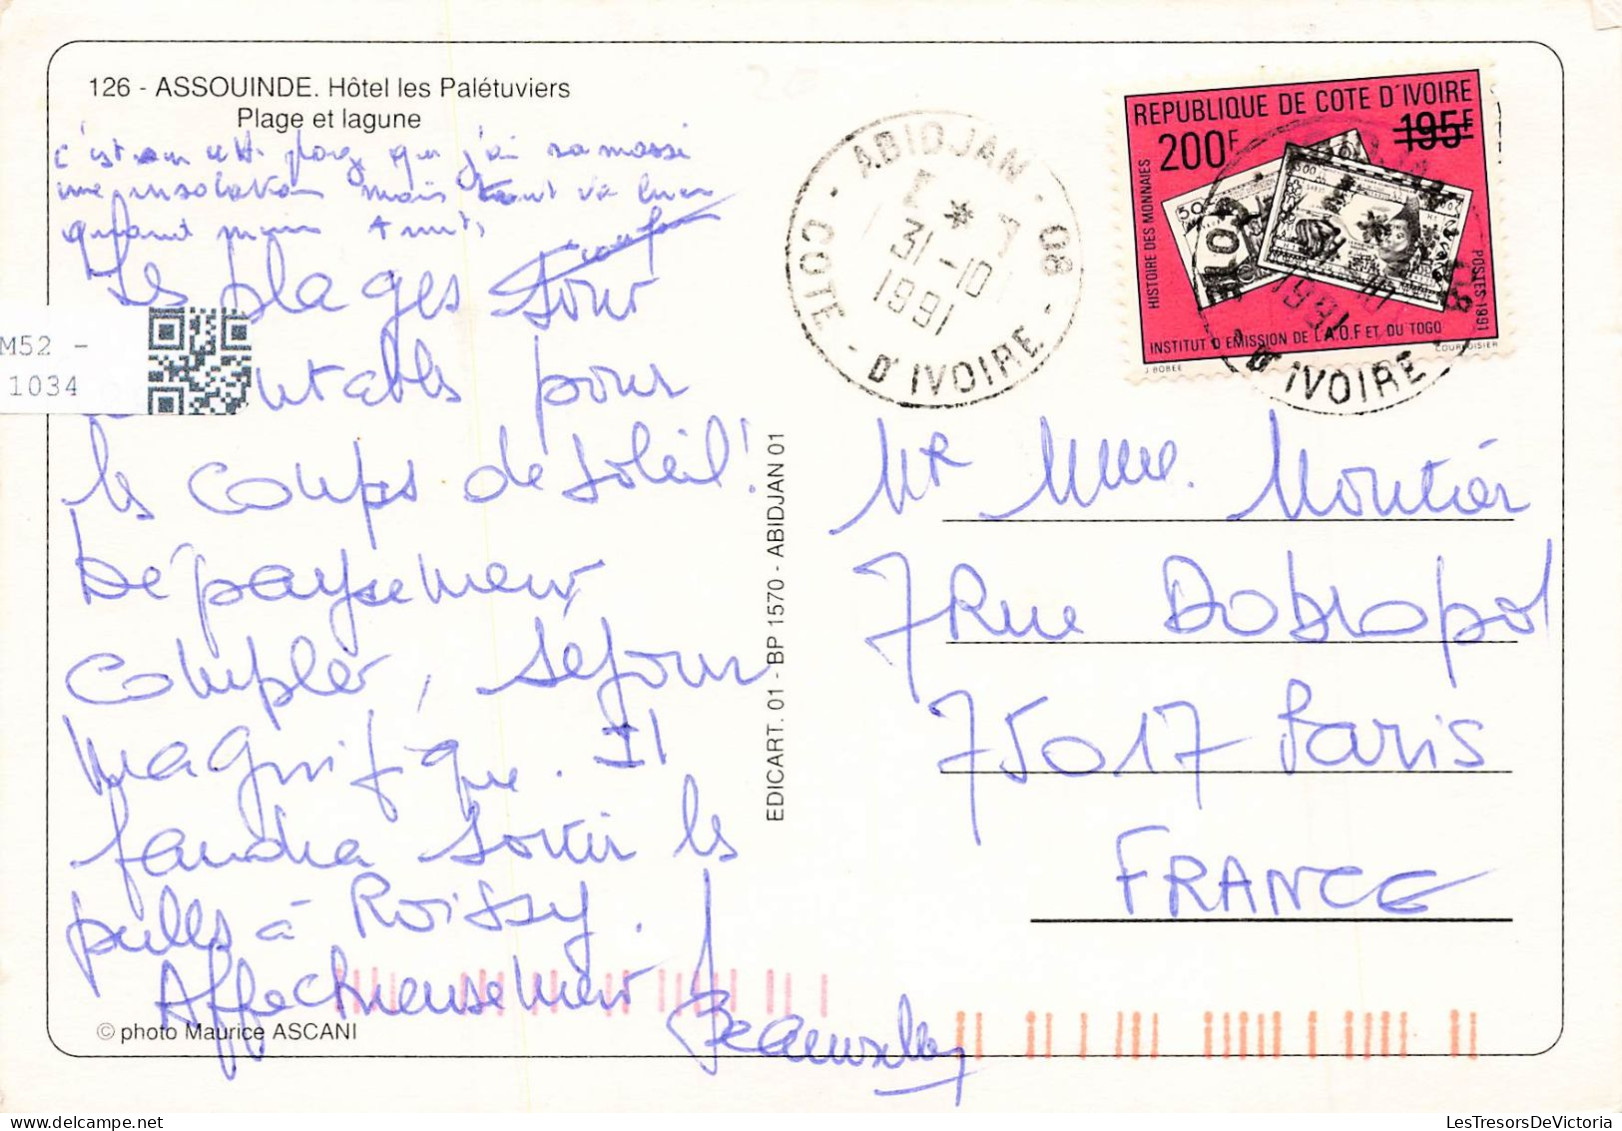 126 - ASSOUINDE. Hôtel les Palétuviers
Plage et lagune
c'est sur cette plage que j'ai ramassé
une insolation mais tout va bien
quand même
Les plages sont
pour
les coups de soleil!
Dépaysement
complet, séjour
magnifique. Il
faudra sortir les
pulls à Roissy.
Affectueusement
© photo Maurice ASCANI
M52 -
1034
EDICART. 01 - BP 1570 - ABIDJAN 01
ABIDJAN - 08 -
31-10
1991
COTE - D'IVOIRE
REPUBLIQUE DE COTE D'IVOIRE
200F
195F
HISTOIRE DES MONNAIES
POSTES 1991
INSTITUT D'EMISSION DE L'A.O.F ET DU TOGO
J. BOBEE
COURVOISIER
1991
D'IVOIRE
Mr Mme. Montier
7 Rue Dobropol
75017 Paris
FRANCE
LesTresorsDeVictoria.com